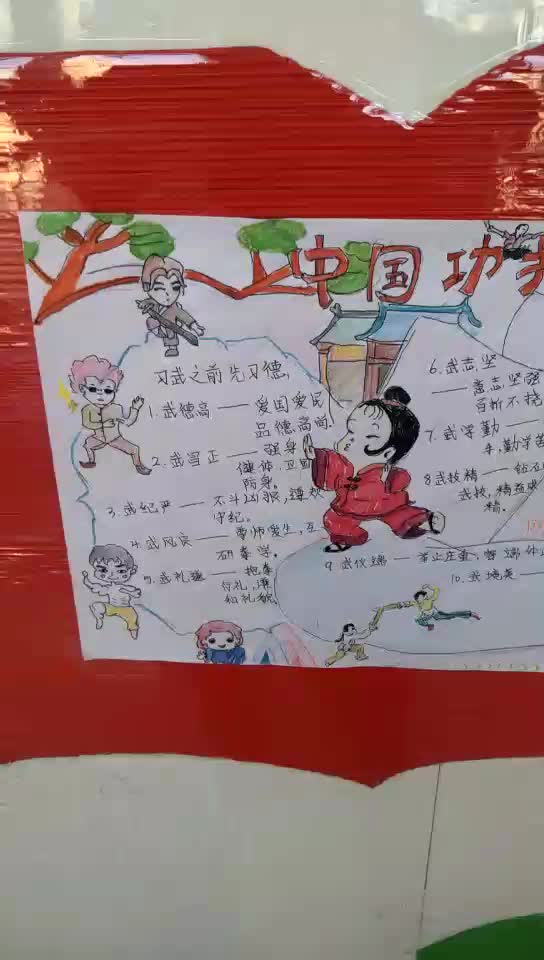 中国功夫
习武之前先习德,
1. 武德高 — 爱国爱民
品德高尚.
2. 武旨正 — 强身
健体, 卫国
防身。
3. 武纪严 — 不斗凶狠, 遵
守纪。
4. 武风良 — 尊师爱生, 互
研拳学。
5. 武礼谦 — 抱拳
行礼, 谦
和礼貌
6. 武志坚
— 意志坚强
百折不挠
7. 武学勤 —
勤学苦
8 武技精 — 钻
武技, 精益求
精。
9 武仪端 — 举止庄重, 容端
10. 武境美 —